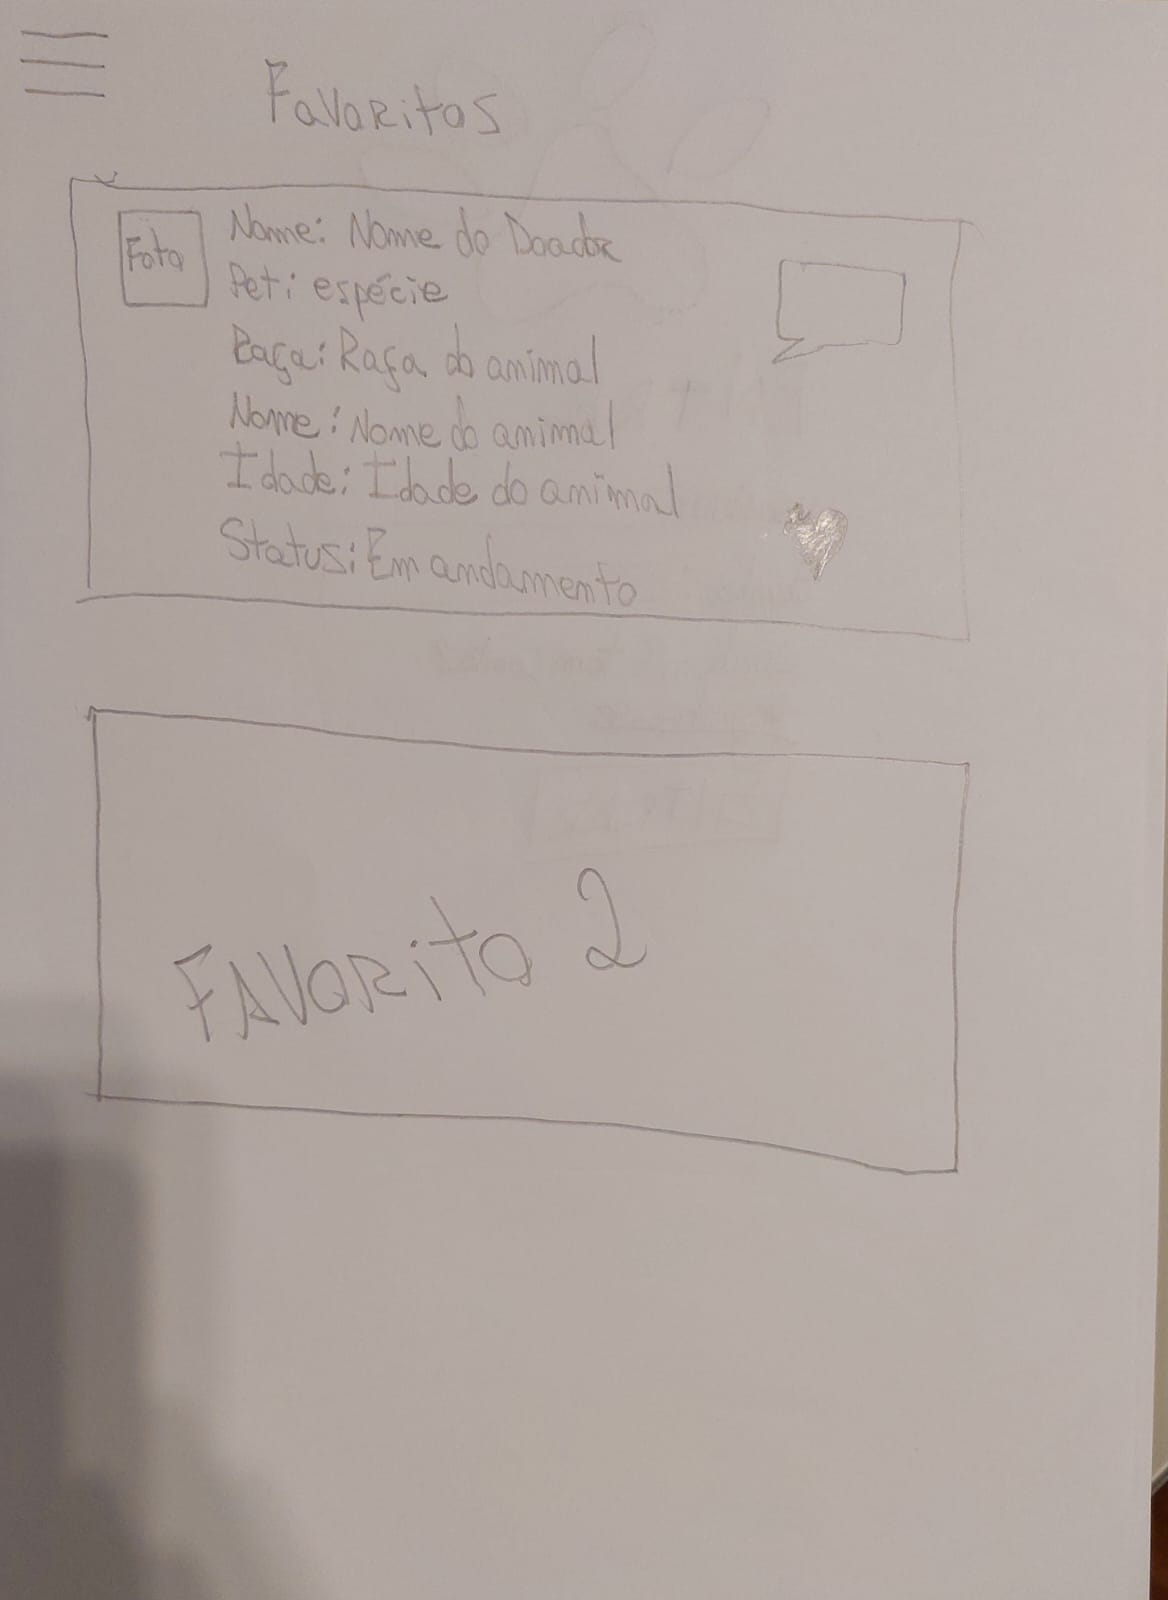 Favoritos
Foto
Nome: Nome do Doador
Pet: espécie
Raça: Raça do animal
Nome: Nome do animal
Idade: Idade do animal
Status: Em andamento
FAVORito 2